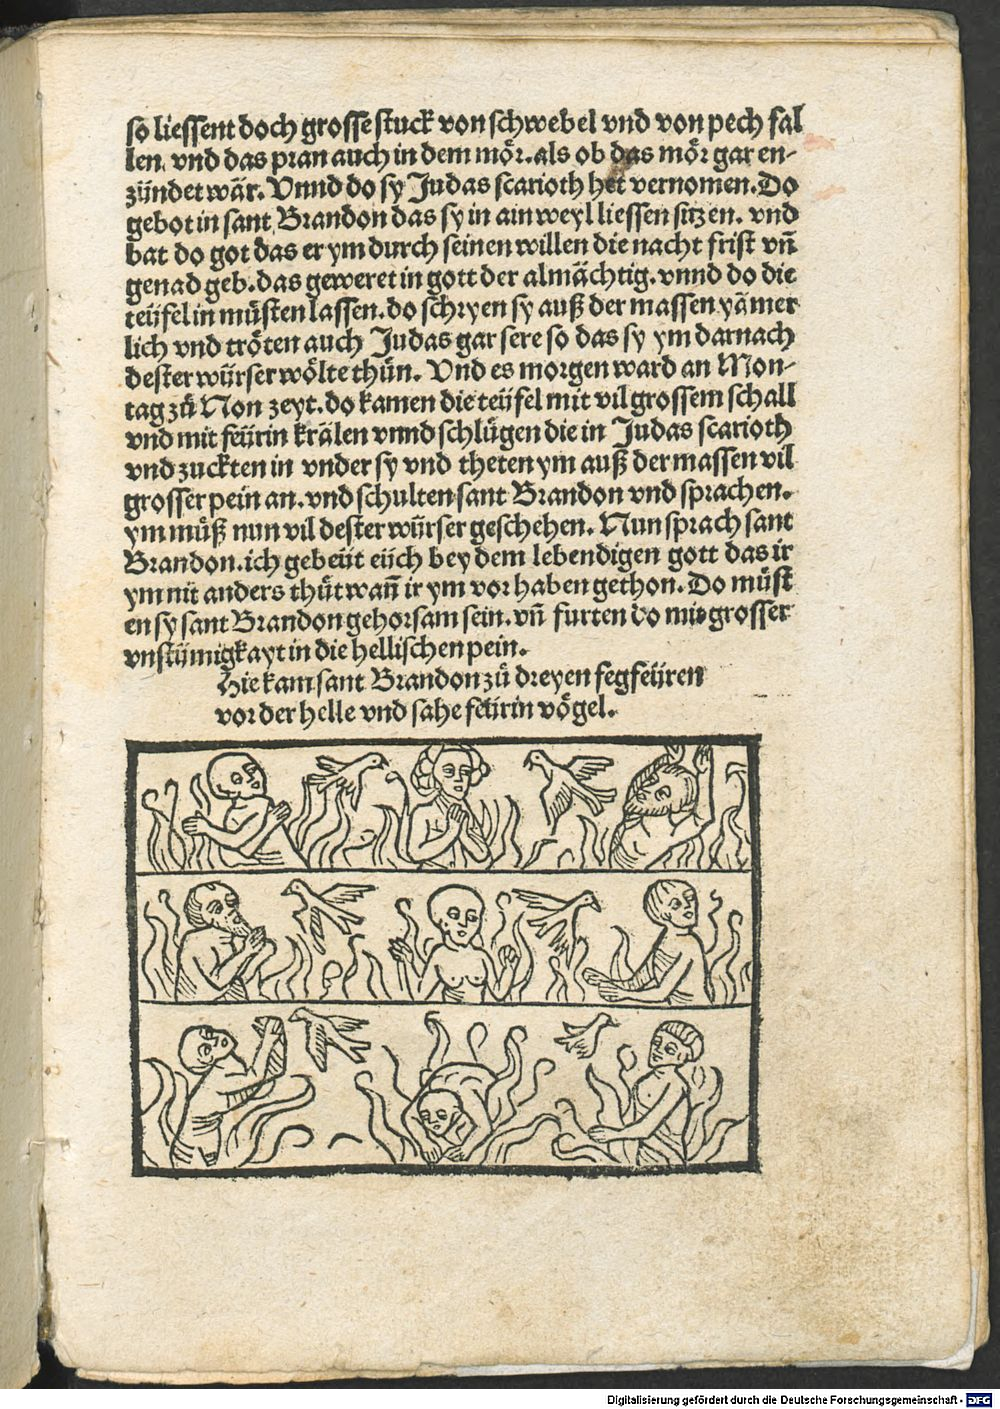 so liessent doch grosse stuck von schwebel vnd von pech fal
len. vnd das pran auch in dem mör. als ob das mör gar en-
zündet wär. Vnnd do sy Judas scarioth het vernomen. Do
gebot in sant Brandon das sy in ain weyl liessen sitzen. vnd
bat do got das er ym durch seinen willen die nacht frist vn̄
genad geb. das geweret in gott der almächtig. vnnd do die
teüfel in müsten lassen. do schryen sy auß der massen yämer
lich vnd tröten auch Judas gar sere so das sy ym darnach
dester würser wölte thůn. Vnd es morgen ward an Mon-
tag zů Non zeyt. do kamen die teüfel mit vil grossem schall
vnd mit feürin krälen vnnd schlůgen die in Judas scarioth
vnd zuckten in vnder sy vnd theten ym auß der massen vil
grosser pein an. vnd schulten sant Brandon vnd sprachen.
ym můß nun vil dester würser geschehen. Nun sprach sant
Brandon. ich gebeüt eüch bey dem lebendigen gott das ir
ym nit anders thůt wan̄ ir ym vor haben gethon. Do můst
en sy sant Brandon gehorsam sein. vn̄ furten do mit grosser
vnstümigkayt in die hellischen pein.
Hie kam sant Brandon zů dreyen fegfeüren
vor der helle vnd sahe feürin vögel.
Digitalisierung gefördert durch die Deutsche Forschungsgemeinschaft - DFG